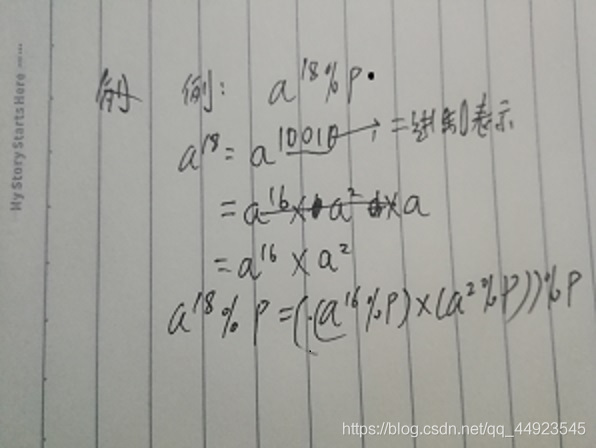 My Story Starts Here ......
例: a^18 % p.
a^18 = a^10010 → 二进制表示
= a^16 × a^2 × a
= a^16 × a^2
a^18 % p = ((a^16 % p) × (a^2 % p)) % p
https://blog.csdn.net/qq_44923545